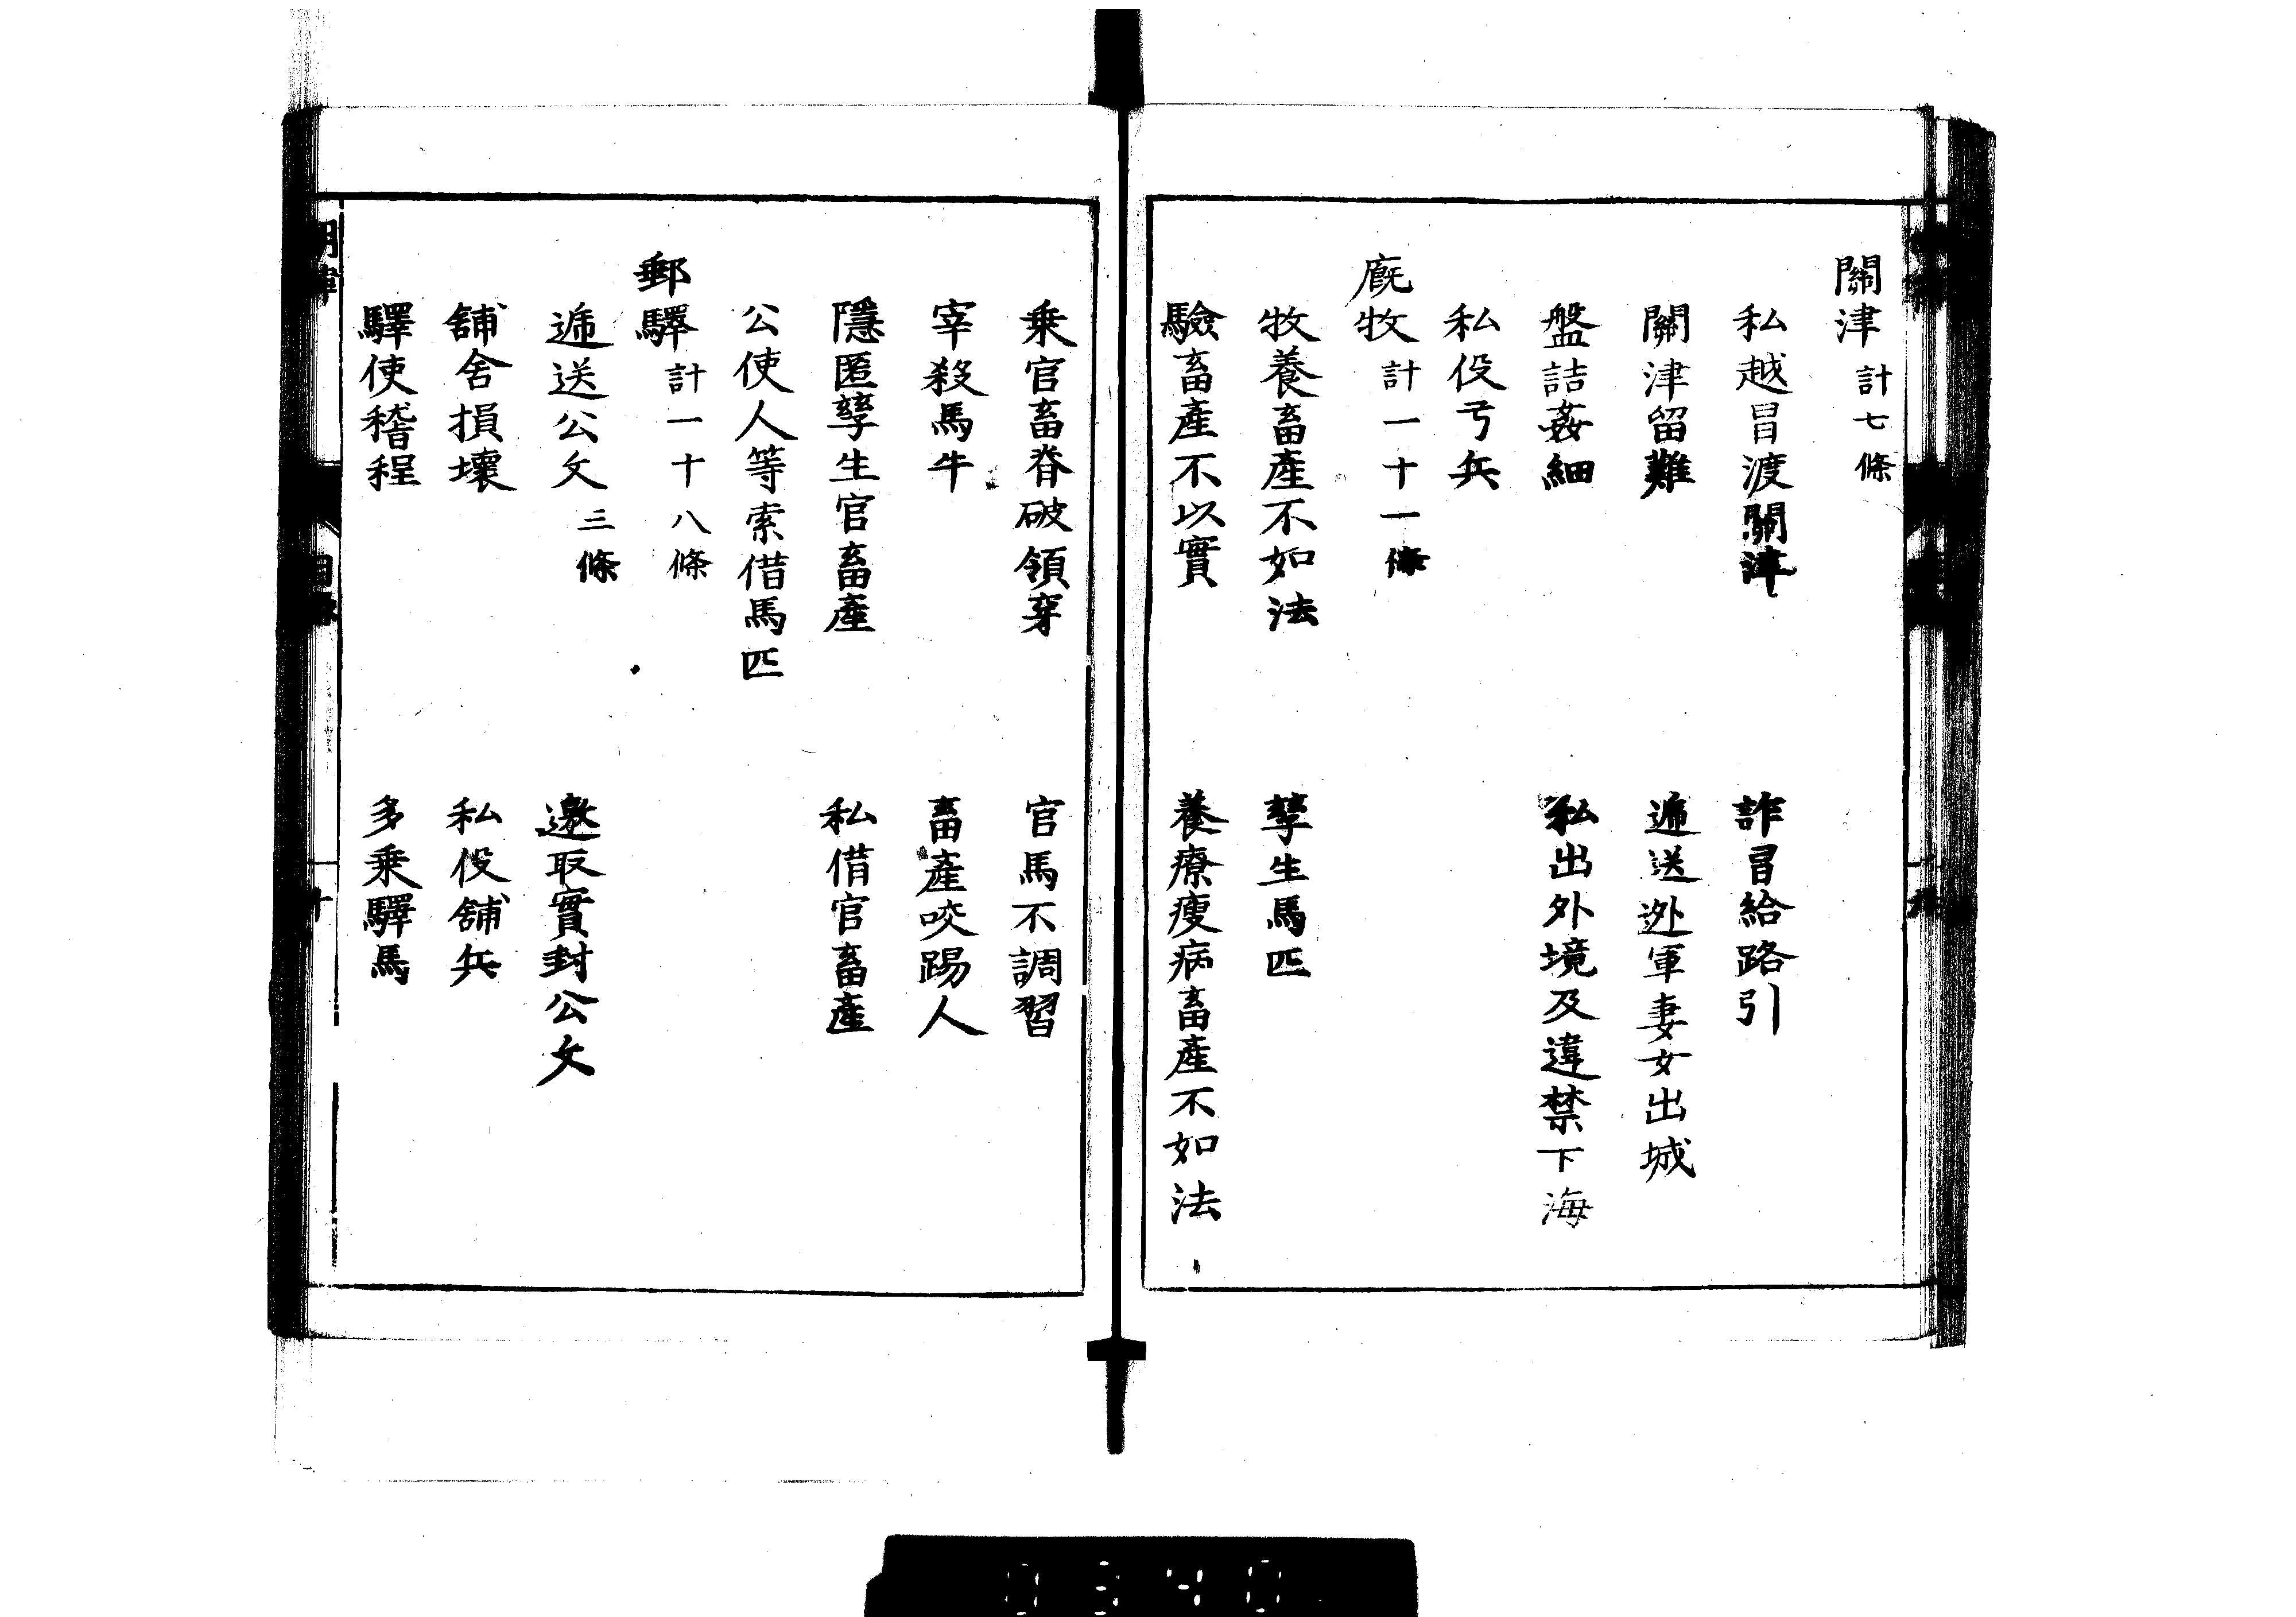 關津計七條
私越冒渡關津　詐冒給路引
關津留難　遞送逃軍妻女出城
盤詰姦細　私出外境及違禁下海
私役弓兵
廐牧計一十一條
牧養畜產不如法　孳生馬匹
驗畜產不以實　養療瘦病畜產不如法
乗官畜脊破領穿　官馬不調習
宰殺馬牛　畜產咬踢人
隱匿孳生官畜產　私借官畜產
公使人等索借馬匹
郵驛計一十八條
遞送公文三條　邀取實封公文
舖舍損壞　私役舖兵
驛使稽程　多乗驛馬
目錄
十
0340